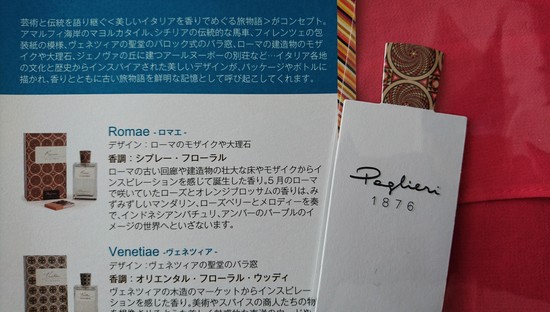 芸術と伝統を語り継ぐ<美しいイタリアを香りでめぐる旅物語>がコンセプト。
アマルフィ海岸のマヨルカタイル、シチリアの伝統的な馬車、フィレンツェの包
装紙の模様、ヴェネツィアの聖堂のバロック式のバラ窓、ローマの建造物のモザ
イクや大理石、ジェノヴァの丘に建つアールヌーボーの別荘など…イタリア各地
の文化と歴史からインスパイアされた美しいデザインが、パッケージやボトルに
描かれ、香りとともに古い旅物語を鮮明な記憶として呼び起こしてくれます。
Romae -ロマエ-
デザイン:ローマのモザイクや大理石
香調:シプレー・フローラル
ローマの古い回廊や建造物の壮大な床やモザイクからイ
ンスピレーションを感じて誕生した香り。5月のローマ
で咲いていたローズとオレンジブロッサムの香りは、み
ずみずしいマンダリン、ローズベリーとメロディーを奏
で、インドネシアンパチュリ、アンバーのパープルのイ
メージの世界へといざないます。
Venetiae -ヴェネツィア-
デザイン:ヴェネツィアの聖堂のバラ窓
香調:オリエンタル・フローラル・ウッディ
ヴェネツィアの木造のマーケットからインスピレー
ションを感じた香り。美術やスパイスの商人たちの物
Paglieri
1876